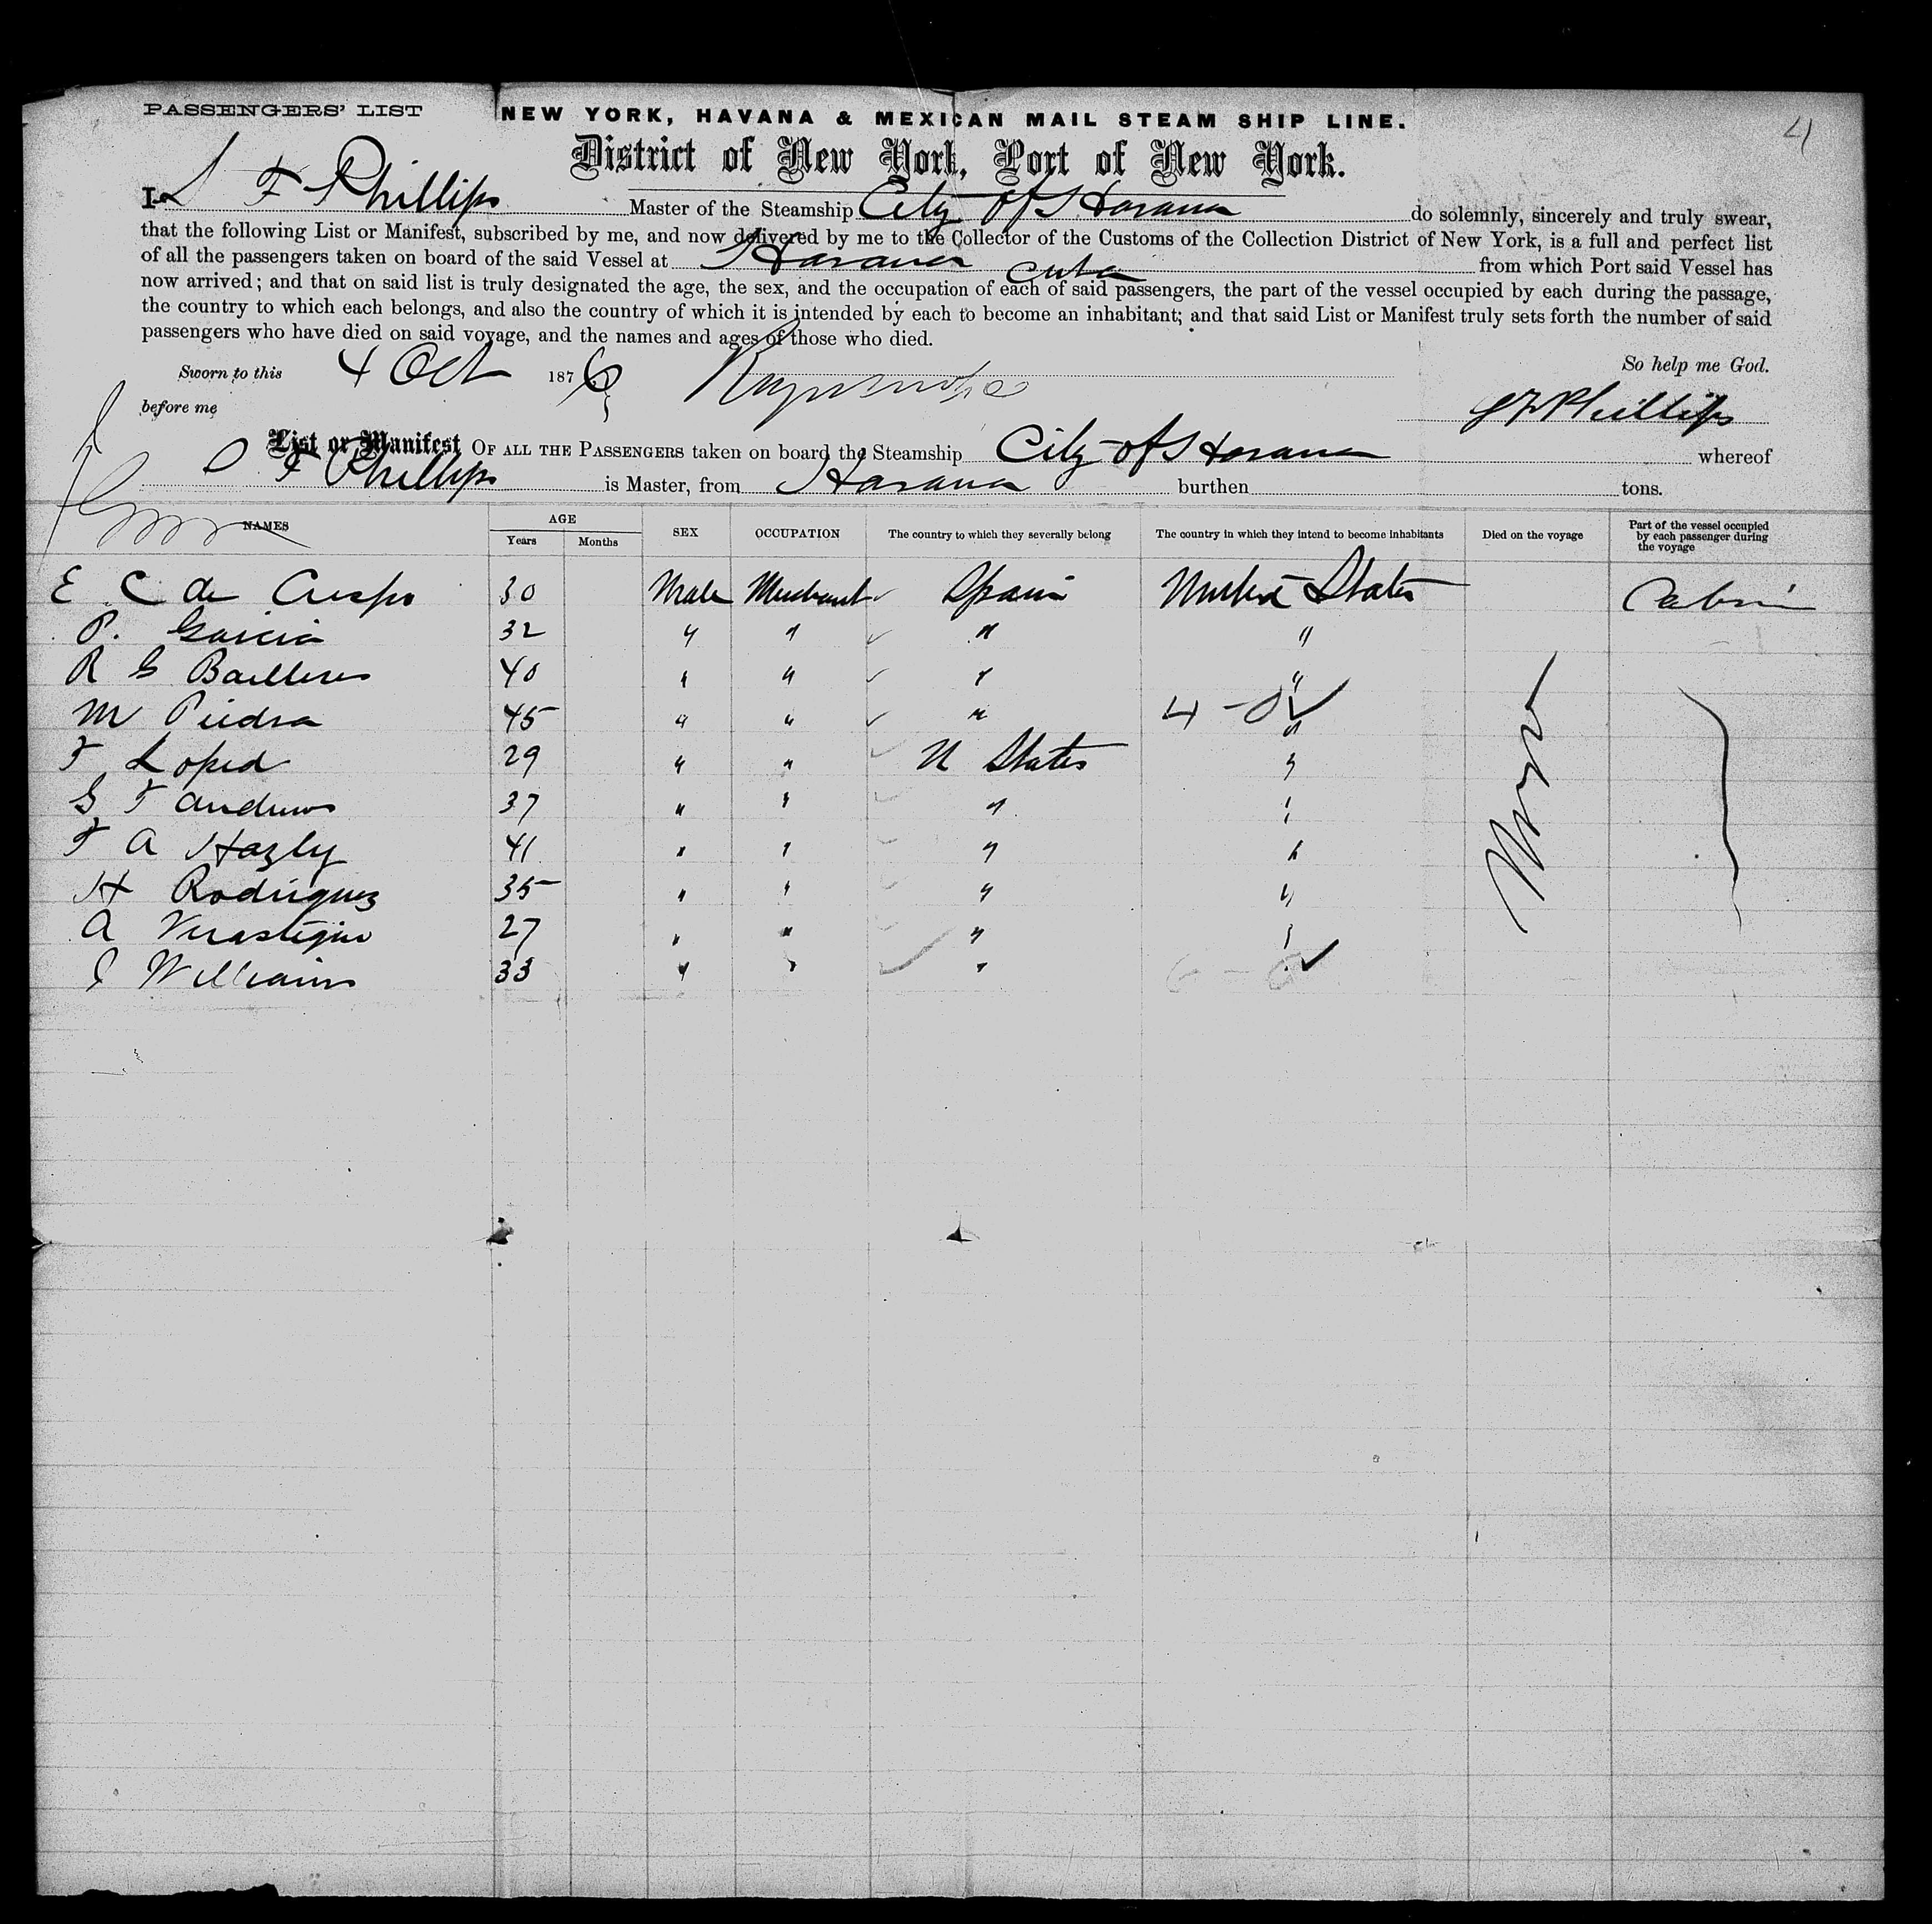 4
PASSENGERS' LIST NEW YORK, HAVANA & MEXICAN MAIL STEAM SHIP LINE.
District of New York, Port of New York.
I F Phillips Master of the Steamship City of Havana do solemnly, sincerely and truly swear,
that the following List or Manifest, subscribed by me, and now delivered by me to the Collector of the Customs of the Collection District of New York, is a full and perfect list
of all the passengers taken on board of the said Vessel at Havana Cuba from which Port said Vessel has
now arrived; and that on said list is truly designated the age, the sex, and the occupation of each of said passengers, the part of the vessel occupied by each during the passage,
the country to which each belongs, and also the country of which it is intended by each to become an inhabitant; and that said List or Manifest truly sets forth the number of said
passengers who have died on said voyage, and the names and ages of those who died.
So help me God.
Sworn to this 4 Oct 1876
before me Phillips
List or Manifest OF ALL THE PASSENGERS taken on board the Steamship City of Havana whereof
F Phillips is Master, from Havana burthen tons.
NAMES AGE Years Months SEX OCCUPATION The country to which they severally belong The country in which they intend to become inhabitants Died on the voyage Part of the vessel occupied by each passenger during the voyage
E C de Crespo 30 Male Merchant Spain United States Cabin
P. Garcia 32 " " " "
R G Bailleres 40 " " " "
M Piedra 45 " " " " 4 - 0
F Loped 29 " " U States "
G F Andrews 37 " " " "
F A Hazly 41 " " " "
H Rodriguez 35 " " " "
A Verastegui 27 " " " "
J Williams 33 " " " " 6 - 6